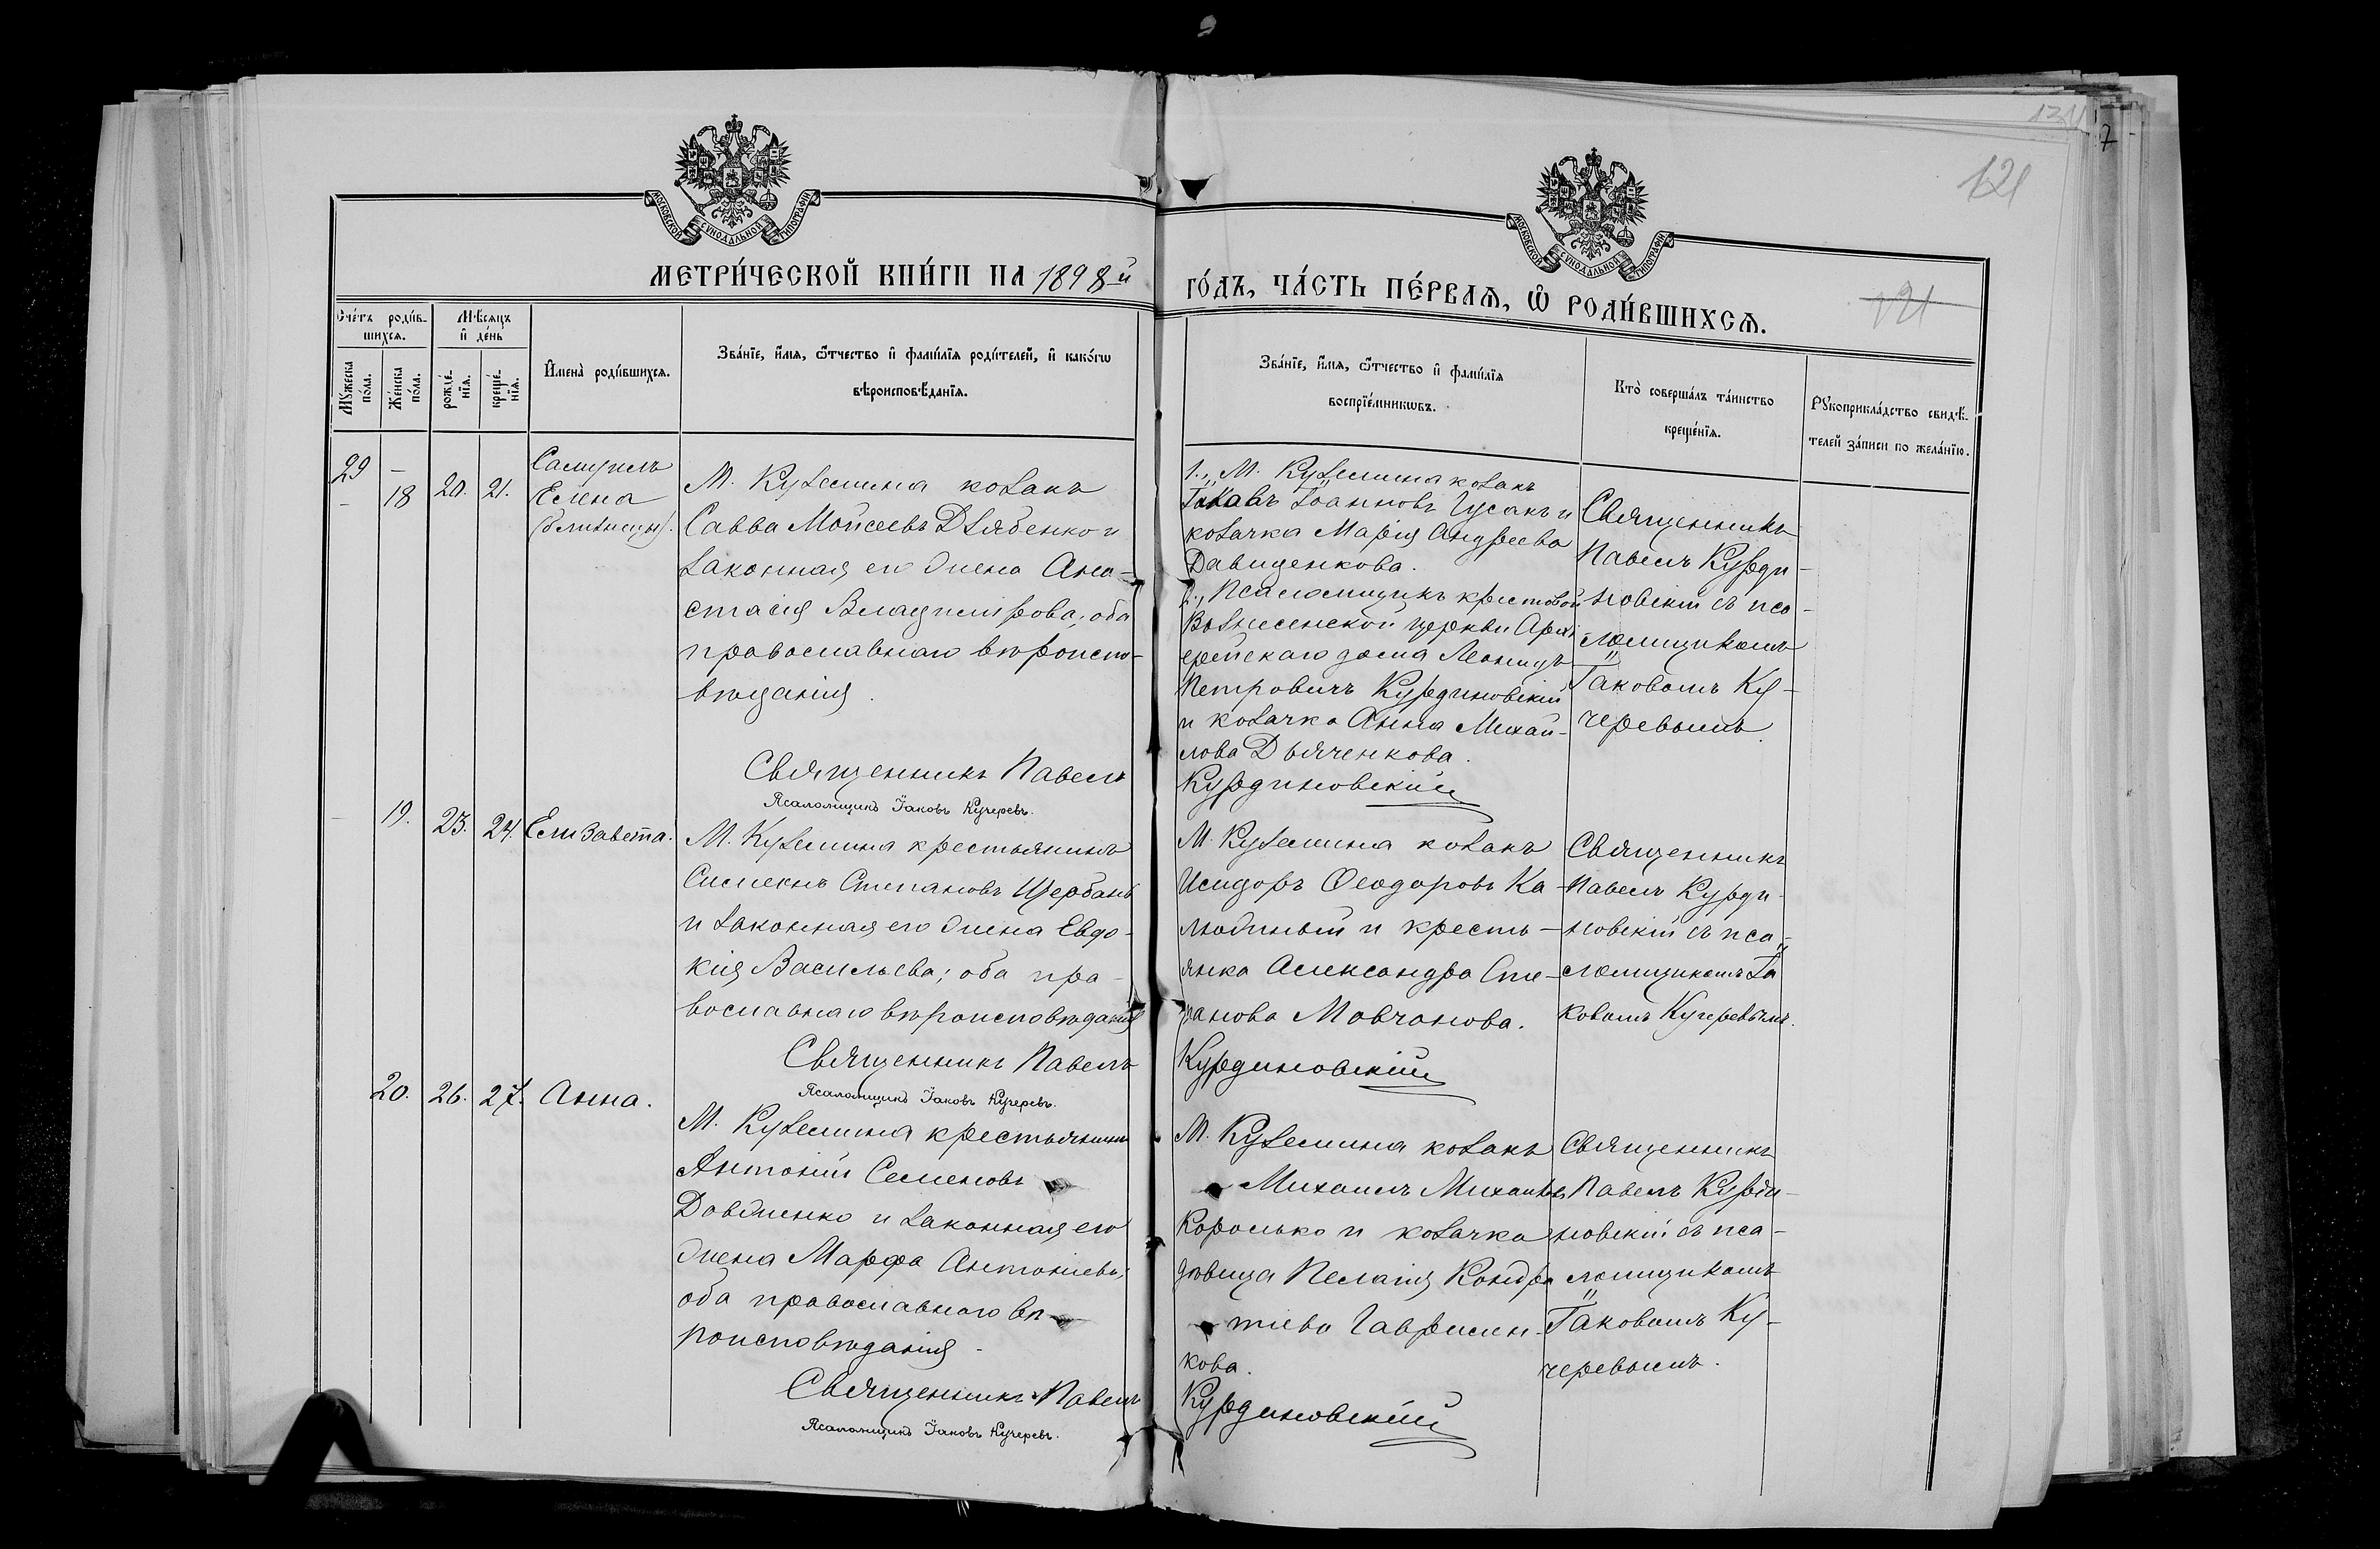 121
МОСКОВСКОЙ СУНОДАЛЬНОЙ ТИПОГРАФІИ
МОСКОВСКОЙ СУНОДАЛЬНОЙ ТИПОГРАФІИ
МЕТРИ́ЧЕСКОЙ КНИ́ГИ НА 1898й
ГО́ДЪ, ЧА́СТЬ ПЕ́РВАѦ, Ѡ РОДИ́ВШИХСѦ.
121
Сче́тъ роди́в-
шихсѧ.
Мꙋ́жеска по́ла.
Же́нска по́ла.
Мѣ́сяцъ
и де́нь
рожде́-
нїѧ.
креще́-
нїѧ.
Имена̀ роди́вшихсѧ.
Зва́нїе, и́мѧ, ѻ́тчество и фами́лїѧ роди́телей, и како́гѡ
вѣроисповѣ́данїѧ.
Зва́нїе, и́мѧ, ѻ́тчество и фами́лїѧ
воспрїе́мникѡвъ.
Кто̀ соверша́лъ та́инство
креще́нїѧ.
Рꙋкоприкла́дство свидѣ́-
телей за́писи по жела́нїю.
29 –
– 18
20.
21.
Самуилъ
Елена
(близнецы).
М. Куземина козакъ
Савва Моисеевъ Дзябенко и
законная его жена Ана-
стасія Владимірова; оба
православнаго вѣроиспо-
вѣданія.
Священникъ Павелъ
Псаломщикъ Іаковъ Кучеревъ.
1., М. Куземина козакъ
Іаковъ Іоанновъ Гусакъ и
козачка Марія Андреева
Давиденкова.
2., Псаломщикъ крестовой
Вознесенской церкви Архі-
ерейскаго дома Леонидъ
Петровичъ Курдиновскій
и козачка Анна Михай-
лова Дьяченкова.
Курдиновскій
Священникъ
Павелъ Курди-
новскій съ пса-
ломщикомъ
Іаковомъ Ку-
черевымъ.
–
19.
23.
24.
Елизавета.
М. Куземина крестьянинъ
Симеонъ Степановъ Щербань
и законная его жена Евдо-
кія Васильева; оба пра-
вославнаго вѣроисповѣданія
Священникъ Павелъ
Псаломщикъ Іаковъ Кучеревъ.
М. Куземина козакъ
Исидоръ Ѳеодоровъ Ка-
любный и кресть-
янка Александра Сте-
панова Мовчанова.
Курдиновскій
Священникъ
Павелъ Курди-
новскій съ пса-
ломщикомъ Іа
ковомъ Кучеревымъ.
20.
26.
27.
Анна.
М. Куземина крестьянинъ
Антоній Семеновъ
Довженко и законная его
жена Марфа Антоніева;
оба православнаго вѣ-
роисповѣданія
Священникъ Павелъ
Псаломщикъ Іаковъ Кучеревъ.
М. Куземина козакъ
Михаилъ Михайловъ
Королько и козачка
дѣвица Пелагія Кондра
тіева Гаврилен-
кова.
Курдиновскій
Священникъ
Павелъ Курди-
новскій съ пса-
ломщикомъ
Іаковомъ Ку-
черевымъ.